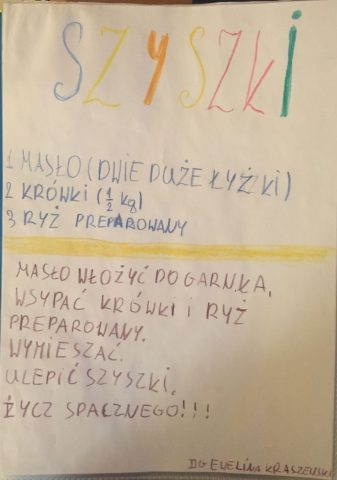 SZYSZKI
1 MASŁO (DWIE DUŻE ŁYŻKI)
2 KRÓWKI (½ kg)
3 RYŻ PREPAROWANY
MASŁO WŁOŻYĆ DO GARNKA,
WSYPAĆ KRÓWKI I RYŻ
PREPAROWANY.
WYMIESZAĆ.
ULEPIĆ SZYSZKI.
ŻYCZ SPACZNEGO!!!
EWELINA KRASZEWSKA